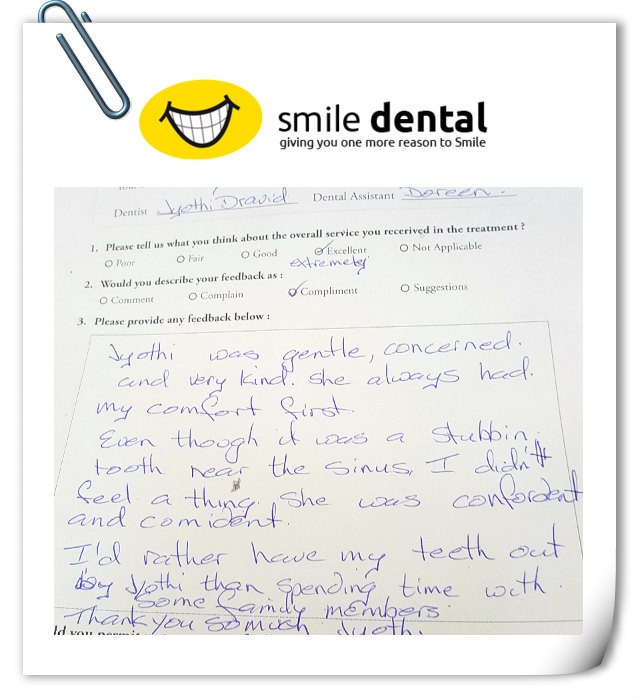 smile dental
giving you one more reason to Smile
Dentist Jyothi Dravid Dental Assistant Doreen.
1. Please tell us what you think about the overall service you recerived in the treatment ?
O Poor O Fair O Good O Excellent O Not Applicable
extremely
2. Would you describe your feedback as :
O Comment O Complain O Compliment O Suggestions
3. Please provide any feedback below :
Jyothi was gentle, concerned.
and very kind. She always had.
my comfort first.
Even though it was a stubbin
tooth near the sinus, I didn't
feel a thing. She was confordent
and comident.
I'd rather have my teeth out
by Jyothi than spending time with.
some family members.
Thank you so much Jyothi.
ld you permit